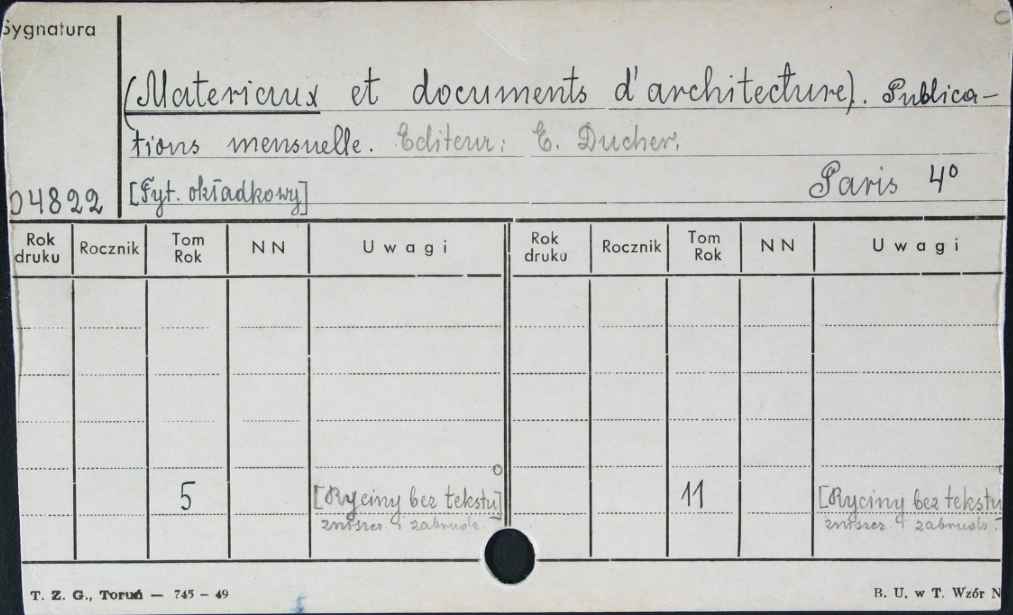 Sygnatura
(Materiaux et documents d'architecture). Publica-
tions mensuelle. Editeur: E. Ducher.
04822 [Tyt. okładkowy] Paris 4°
Rok druku Rocznik Tom Rok NN Uwagi Rok druku Rocznik Tom Rok NN Uwagi
5 [Ryciny bez tekstu] 11 [Ryciny bez tekstu
zniszcz. i zabrudz. zniszcz. i zabrudz.
T. Z. G., Toruń — 745 — 49 B. U. w T. Wzór N